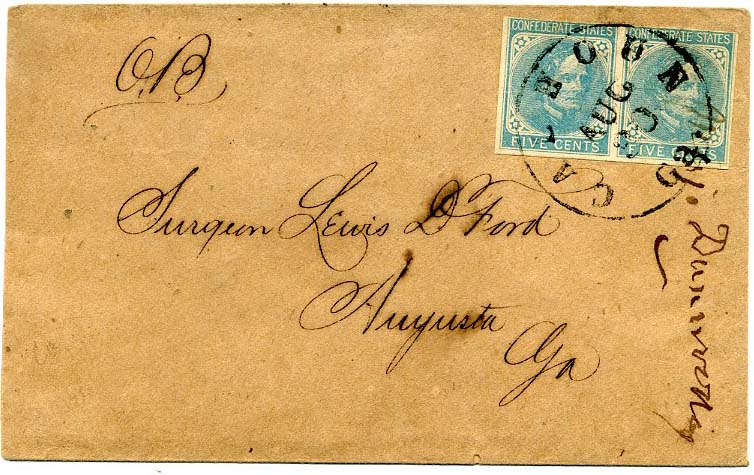 O.B.
CONFEDERATE STATES
FIVE CENTS
CONFEDERATE STATES
FIVE CENTS
CALHOUN
AUG
Surgeon Lewis D. Ford
Augusta
Ga